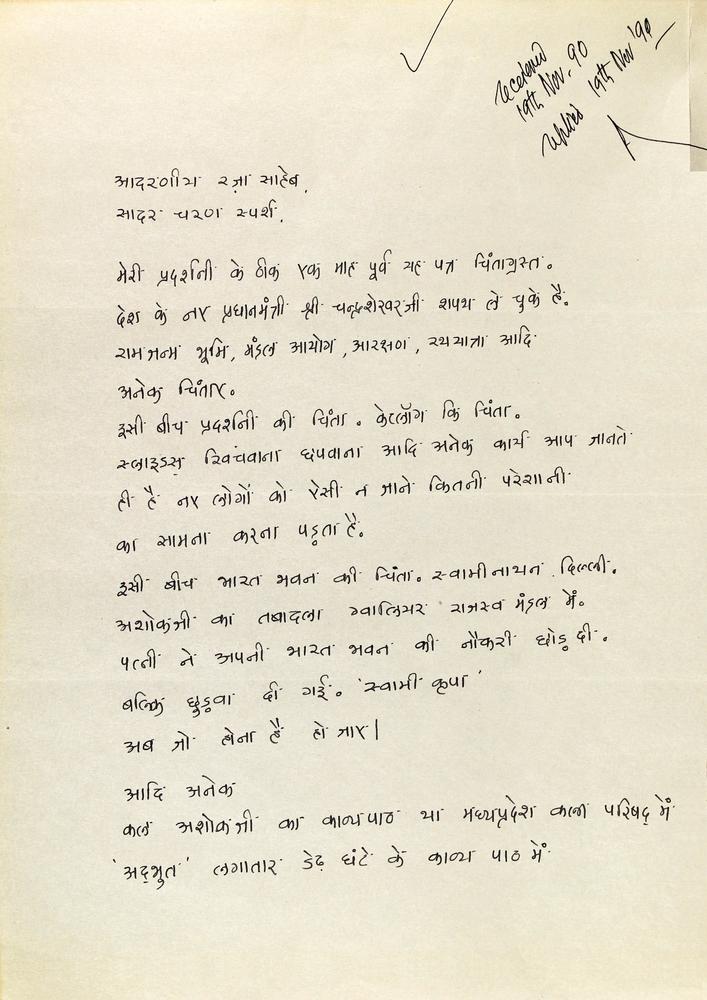 received
19th Nov. 90
replied 19th Nov '90
आदरणीय रज़ा साहेब,
सादर चरण स्पर्श,
मेरी प्रदर्शनी के ठीक एक माह पूर्व यह पत्र चिंताग्रस्त।
देश के नए प्रधानमंत्री श्री चन्द्रशेखरजी शपथ ले चुके है।
रामजन्म भूमि, मंडल आयोग, आरक्षण, रथयात्रा आदि
अनेक चिंताए।
इसी बीच प्रदर्शनी की चिंता। केटलॉग कि चिंता।
स्लाइडस् खिंचवाना छपवाना आदि अनेक कार्य आप जानते
ही है नए लोगों को ऐसी न जाने कितनी परेशानी
का सामना करना पड़ता है।
इसी बीच भारत भवन की चिंता। स्वामीनाथन दिल्ली।
अशोकजी का तबादला ग्वालियर राजस्व मंडल में।
पत्नी ने अपनी भारत भवन की नौकरी छोड़ दी।
बल्कि छुड़वा दी गई। 'स्वामी कृपा'
अब जो होना है हो जाए|
आदि अनेक
कल अशोकजी का काव्यपाठ था मध्यप्रदेश कला परिषद् में
'अद्भुत' लगातार डेढ़ घंटे के काव्य पाठ में